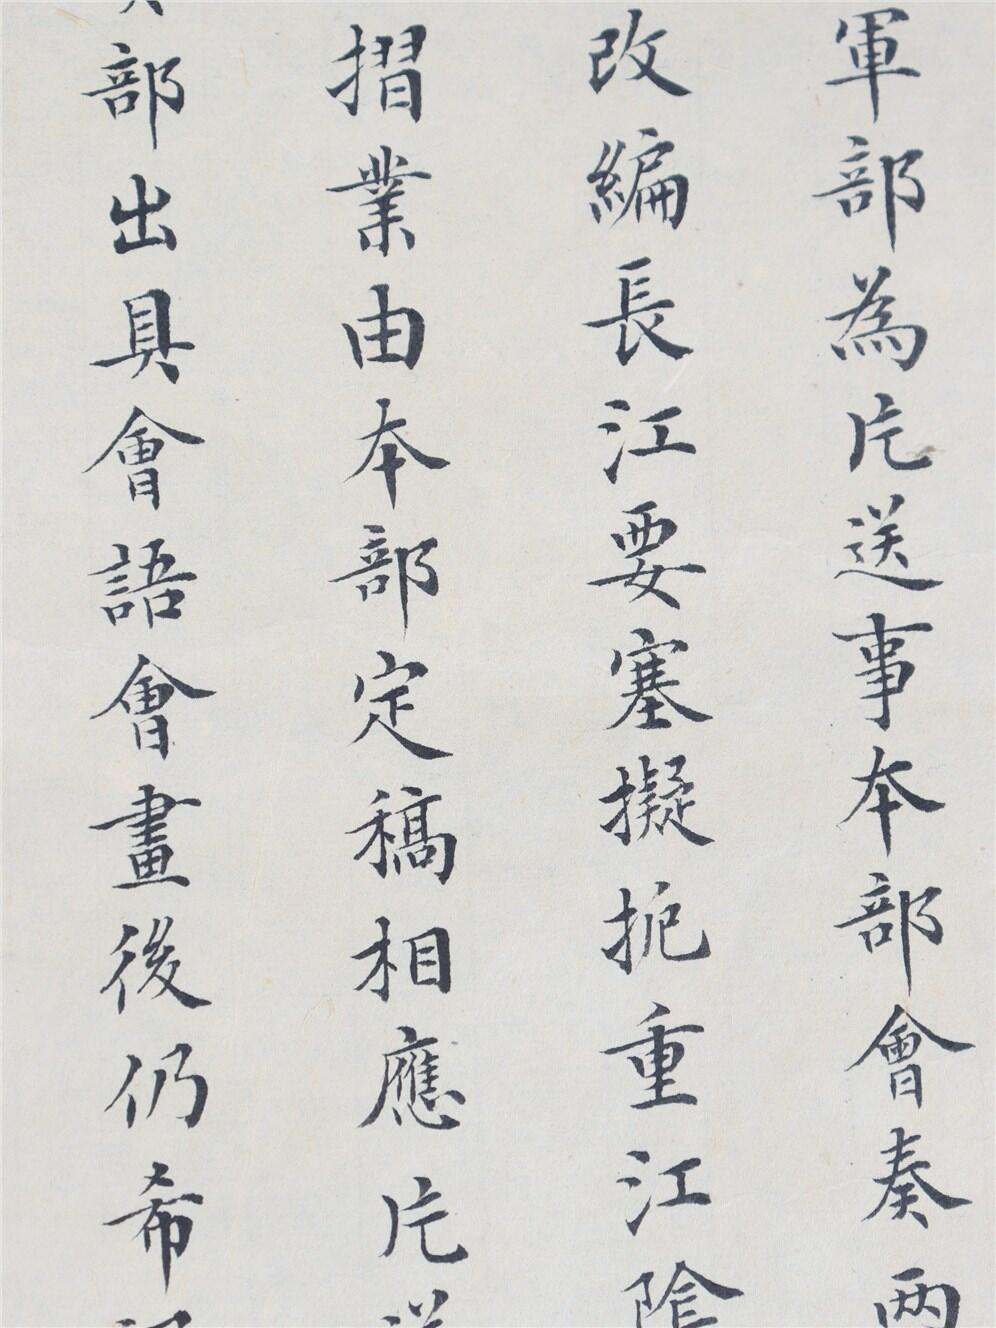 軍部為片送事本部會奏兩
改編長江要塞擬扼重江陰
摺業由本部定稿相應片送
部出具會語會畫後仍希